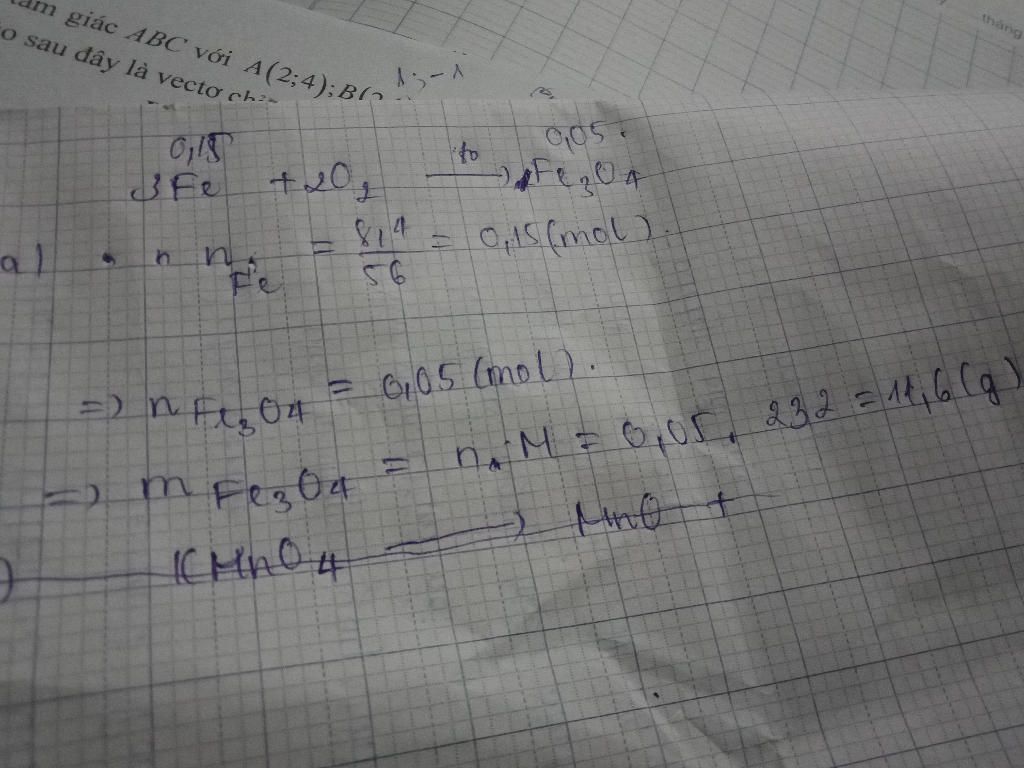 tam giác ABC với A(2;4);B(2
o sau đây là vectơ chỉ
1;-1
tháng
0,15 0,05.
3Fe + 2O2 t0 → Fe3O4
a) • n nFe = 8,4/56 = 0,15(mol).
=) nFe3O4 = 0,05(mol).
=) mFe3O4 = n.M = 0,05. 232 = 11,6(g)
) KMnO4 → MnO +